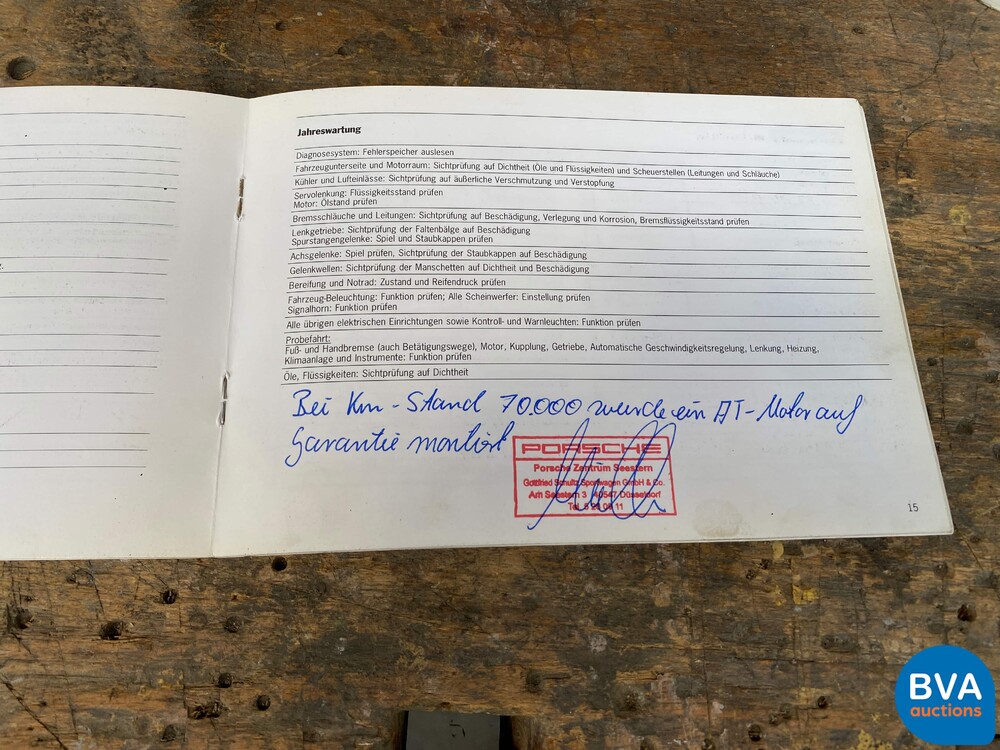 Jahreswartung
Diagnosesystem: Fehlerspeicher auslesen
Fahrzeugunterseite und Motorraum: Sichtprüfung auf Dichtheit (Öle und Flüssigkeiten) und Scheuerstellen (Leitungen und Schläuche)
Kühler und Lufteinlässe: Sichtprüfung auf äußerliche Verschmutzung und Verstopfung
Servolenkung: Flüssigkeitsstand prüfen
Motor: Ölstand prüfen
Bremsschläuche und Leitungen: Sichtprüfung auf Beschädigung, Verlegung und Korrosion, Bremsflüssigkeitsstand prüfen
Lenkgetriebe: Sichtprüfung der Faltenbälge auf Beschädigung
Spurstangengelenke: Spiel und Staubkappen prüfen
Achsgelenke: Spiel prüfen, Sichtprüfung der Staubkappen auf Beschädigung
Gelenkwellen: Sichtprüfung der Manschetten auf Dichtheit und Beschädigung
Bereifung und Notrad: Zustand und Reifendruck prüfen
Fahrzeug-Beleuchtung: Funktion prüfen; Alle Scheinwerfer: Einstellung prüfen
Signalhorn: Funktion prüfen
Alle übrigen elektrischen Einrichtungen sowie Kontroll- und Warnleuchten: Funktion prüfen
Probefahrt:
Fuß- und Handbremse (auch Betätigungswege), Motor, Kupplung, Getriebe, Automatische Geschwindigkeitsregelung, Lenkung, Heizung,
Klimaanlage und Instrumente: Funktion prüfen
Öle, Flüssigkeiten: Sichtprüfung auf Dichtheit
Bei Km-Stand 70.000 wurde ein AT-Motor auf
Garantie montiert
PORSCHE
Porsche Zentrum Seestern
Gottfried Schultz Sportwagen GmbH & Co.
Am Seestern 3 40547 Düsseldorf
Tel.
15
BVA
auctions